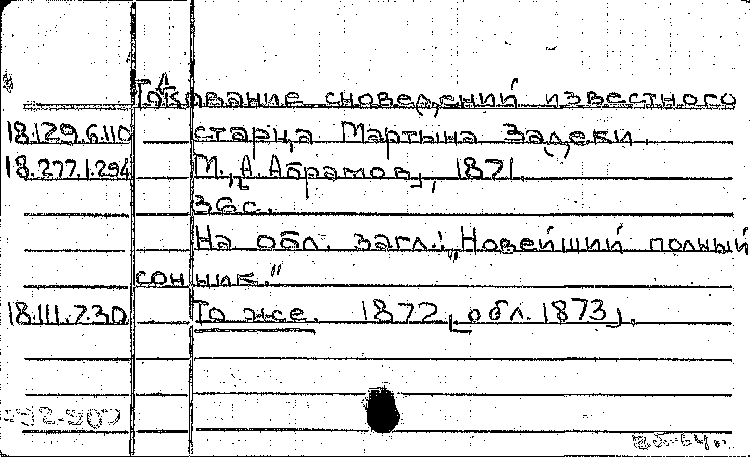 Толкование сноведений известного
18.129.6.110 старца Мартына Задеки.
18.277.1.294 М., [А. Абрамов], 1871.
36с.
На обл. загл.: „Новейший полный
сонник."
18.111.7.30 То же. 1872 [обл. 1873].